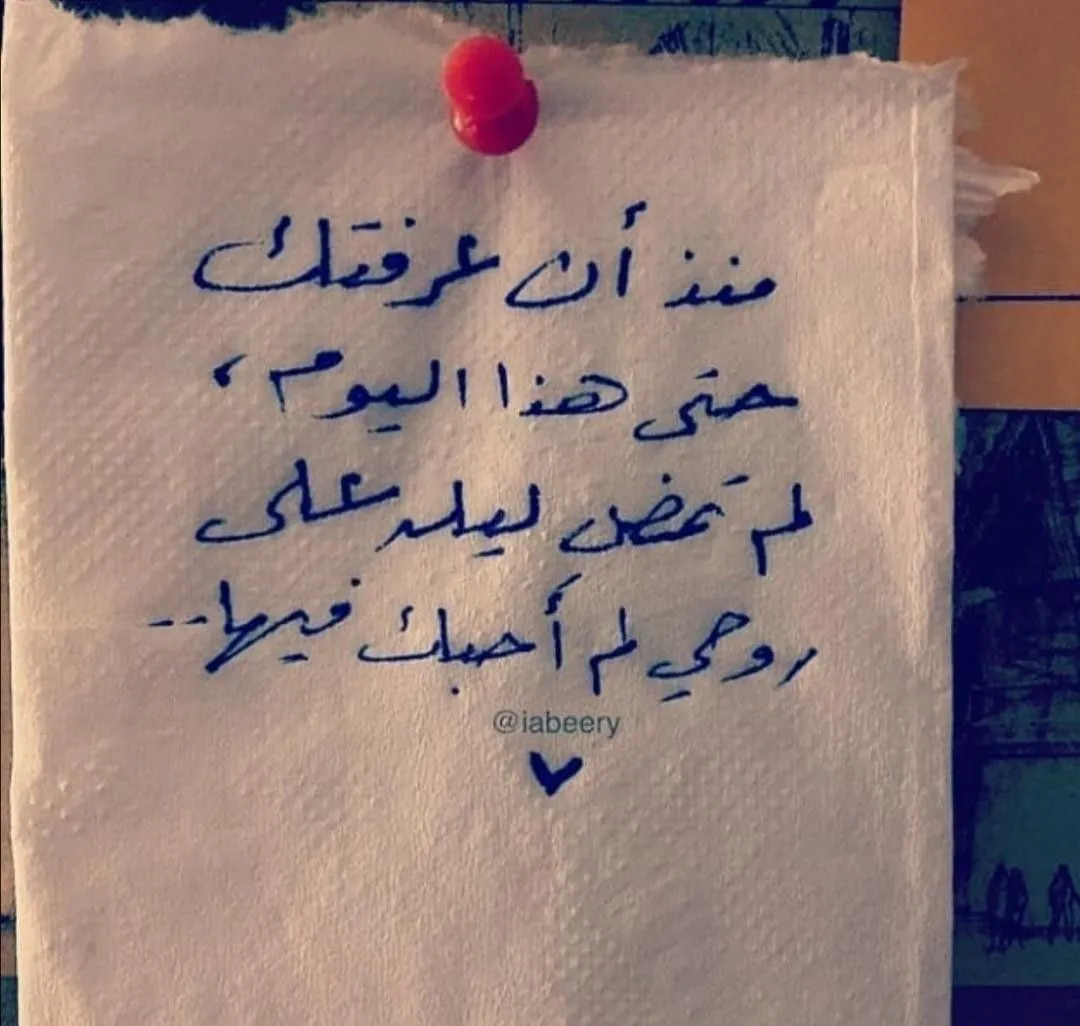 منذ أن عرفتك
حتى هذا اليوم،
لم تمضِ ليلة على
روحي لم أحبك فيها..
@iabeery